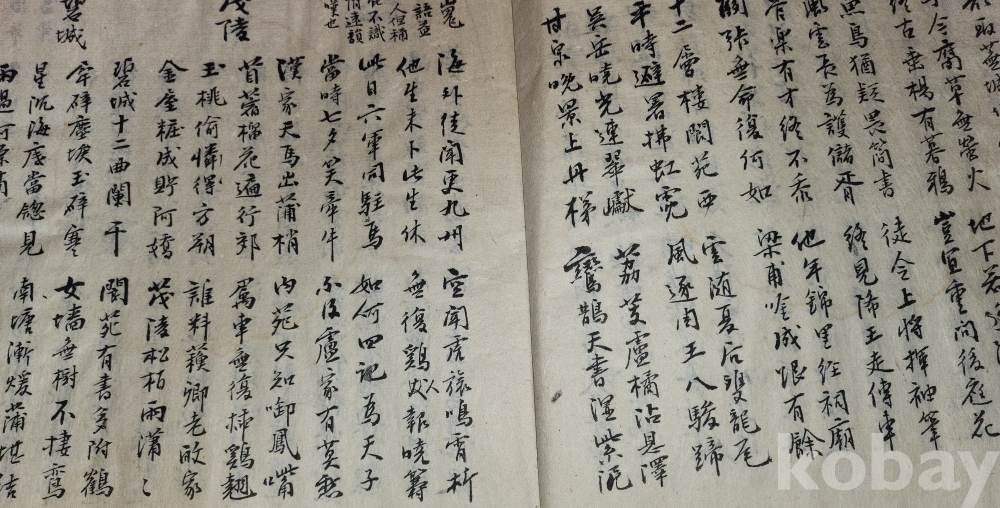 取蕪城
今腐草無螢火 地下若逢
終古垂楊有暮鴉 豈宜重問後庭花
魚鳥猶疑畏簡書 徒令上將揮神筆
風雲長為護儲胥 終見降王走傳車
管樂有才終不忝 他年錦里經祠廟
關張無命復何如 梁甫吟成恨有餘
十二層樓閬苑西 雲随夏后雙龍尾
平時避暑拂虹霓 風逐周王八駿蹄
吳岳曉光連翠巘 荔芰盧橘沾恩澤
甘泉晚景上丹梯 鸞鵲天書濕紫泥
嵬
海外徒聞更九州 空聞虎旅鳴宵柝
他生未卜此生休 無復鷄人報曉籌
此日六軍同駐馬 如何四記為天子
當時七夕笑牽牛 不及盧家有莫愁
茂陵
漢家天馬出蒲梢 內苑只知啣鳳嘴
苜蓿榴花遍行郊 屬車無復插鷄翹
玉桃偷憐得方朔 誰料蘓卿老故家
金屋粧成貯阿嬌 茂陵松柏雨瀟〻
碧城
碧城十二曲闌干 閬苑有書多附鶴
犀辟塵埃玉辟寒 女墻無樹不棲鸞
星沉海底當窓見 南塘漸煖蒲堪結
雨過河源
kobay